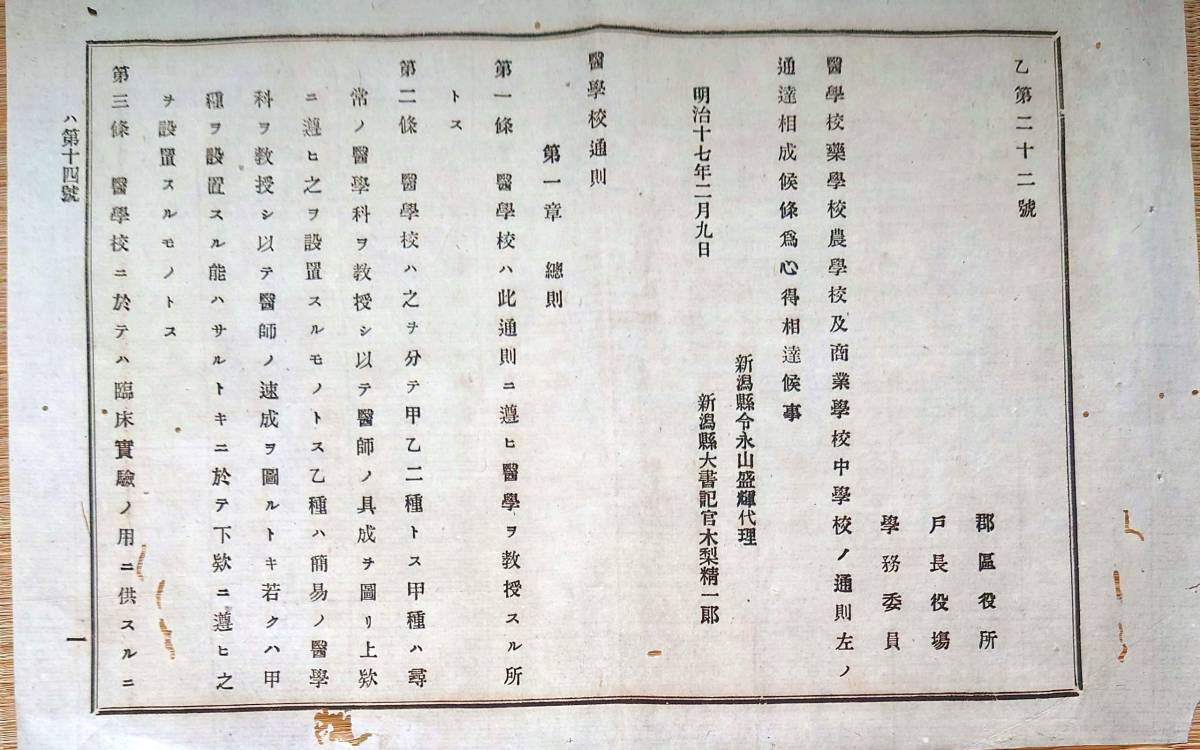 乙第二十二號
郡區役所
戸長役塲
學務委員
醫學校藥學校農學校及商業學校中學校ノ通則左ノ
通達相成候條爲心得相達候事
新潟縣令永山盛輝代理
明治十七年二月九日
新潟縣大書記官木梨精一郎
醫學校通則
第一章 總則
第一條 醫學校ハ此通則ニ遵ヒ醫學ヲ教授スル所
トス
第二條 醫學校ハ之ヲ分テ甲乙二種トス甲種ハ尋
常ノ醫學科ヲ教授シ以テ醫師ノ具成ヲ圖リ上欵
ニ遵ヒ之ヲ設置スルモノトス乙種ハ簡易ノ醫學
科ヲ教授シ以テ醫師ノ速成ヲ圖ルトキ若クハ甲
種ヲ設置スル能ハサルトキニ於テ下欵ニ遵ヒ之
ヲ設置スルモノトス
第三條 醫學校ニ於テハ臨床實驗ノ用ニ供スルニ
ハ第十四號
一